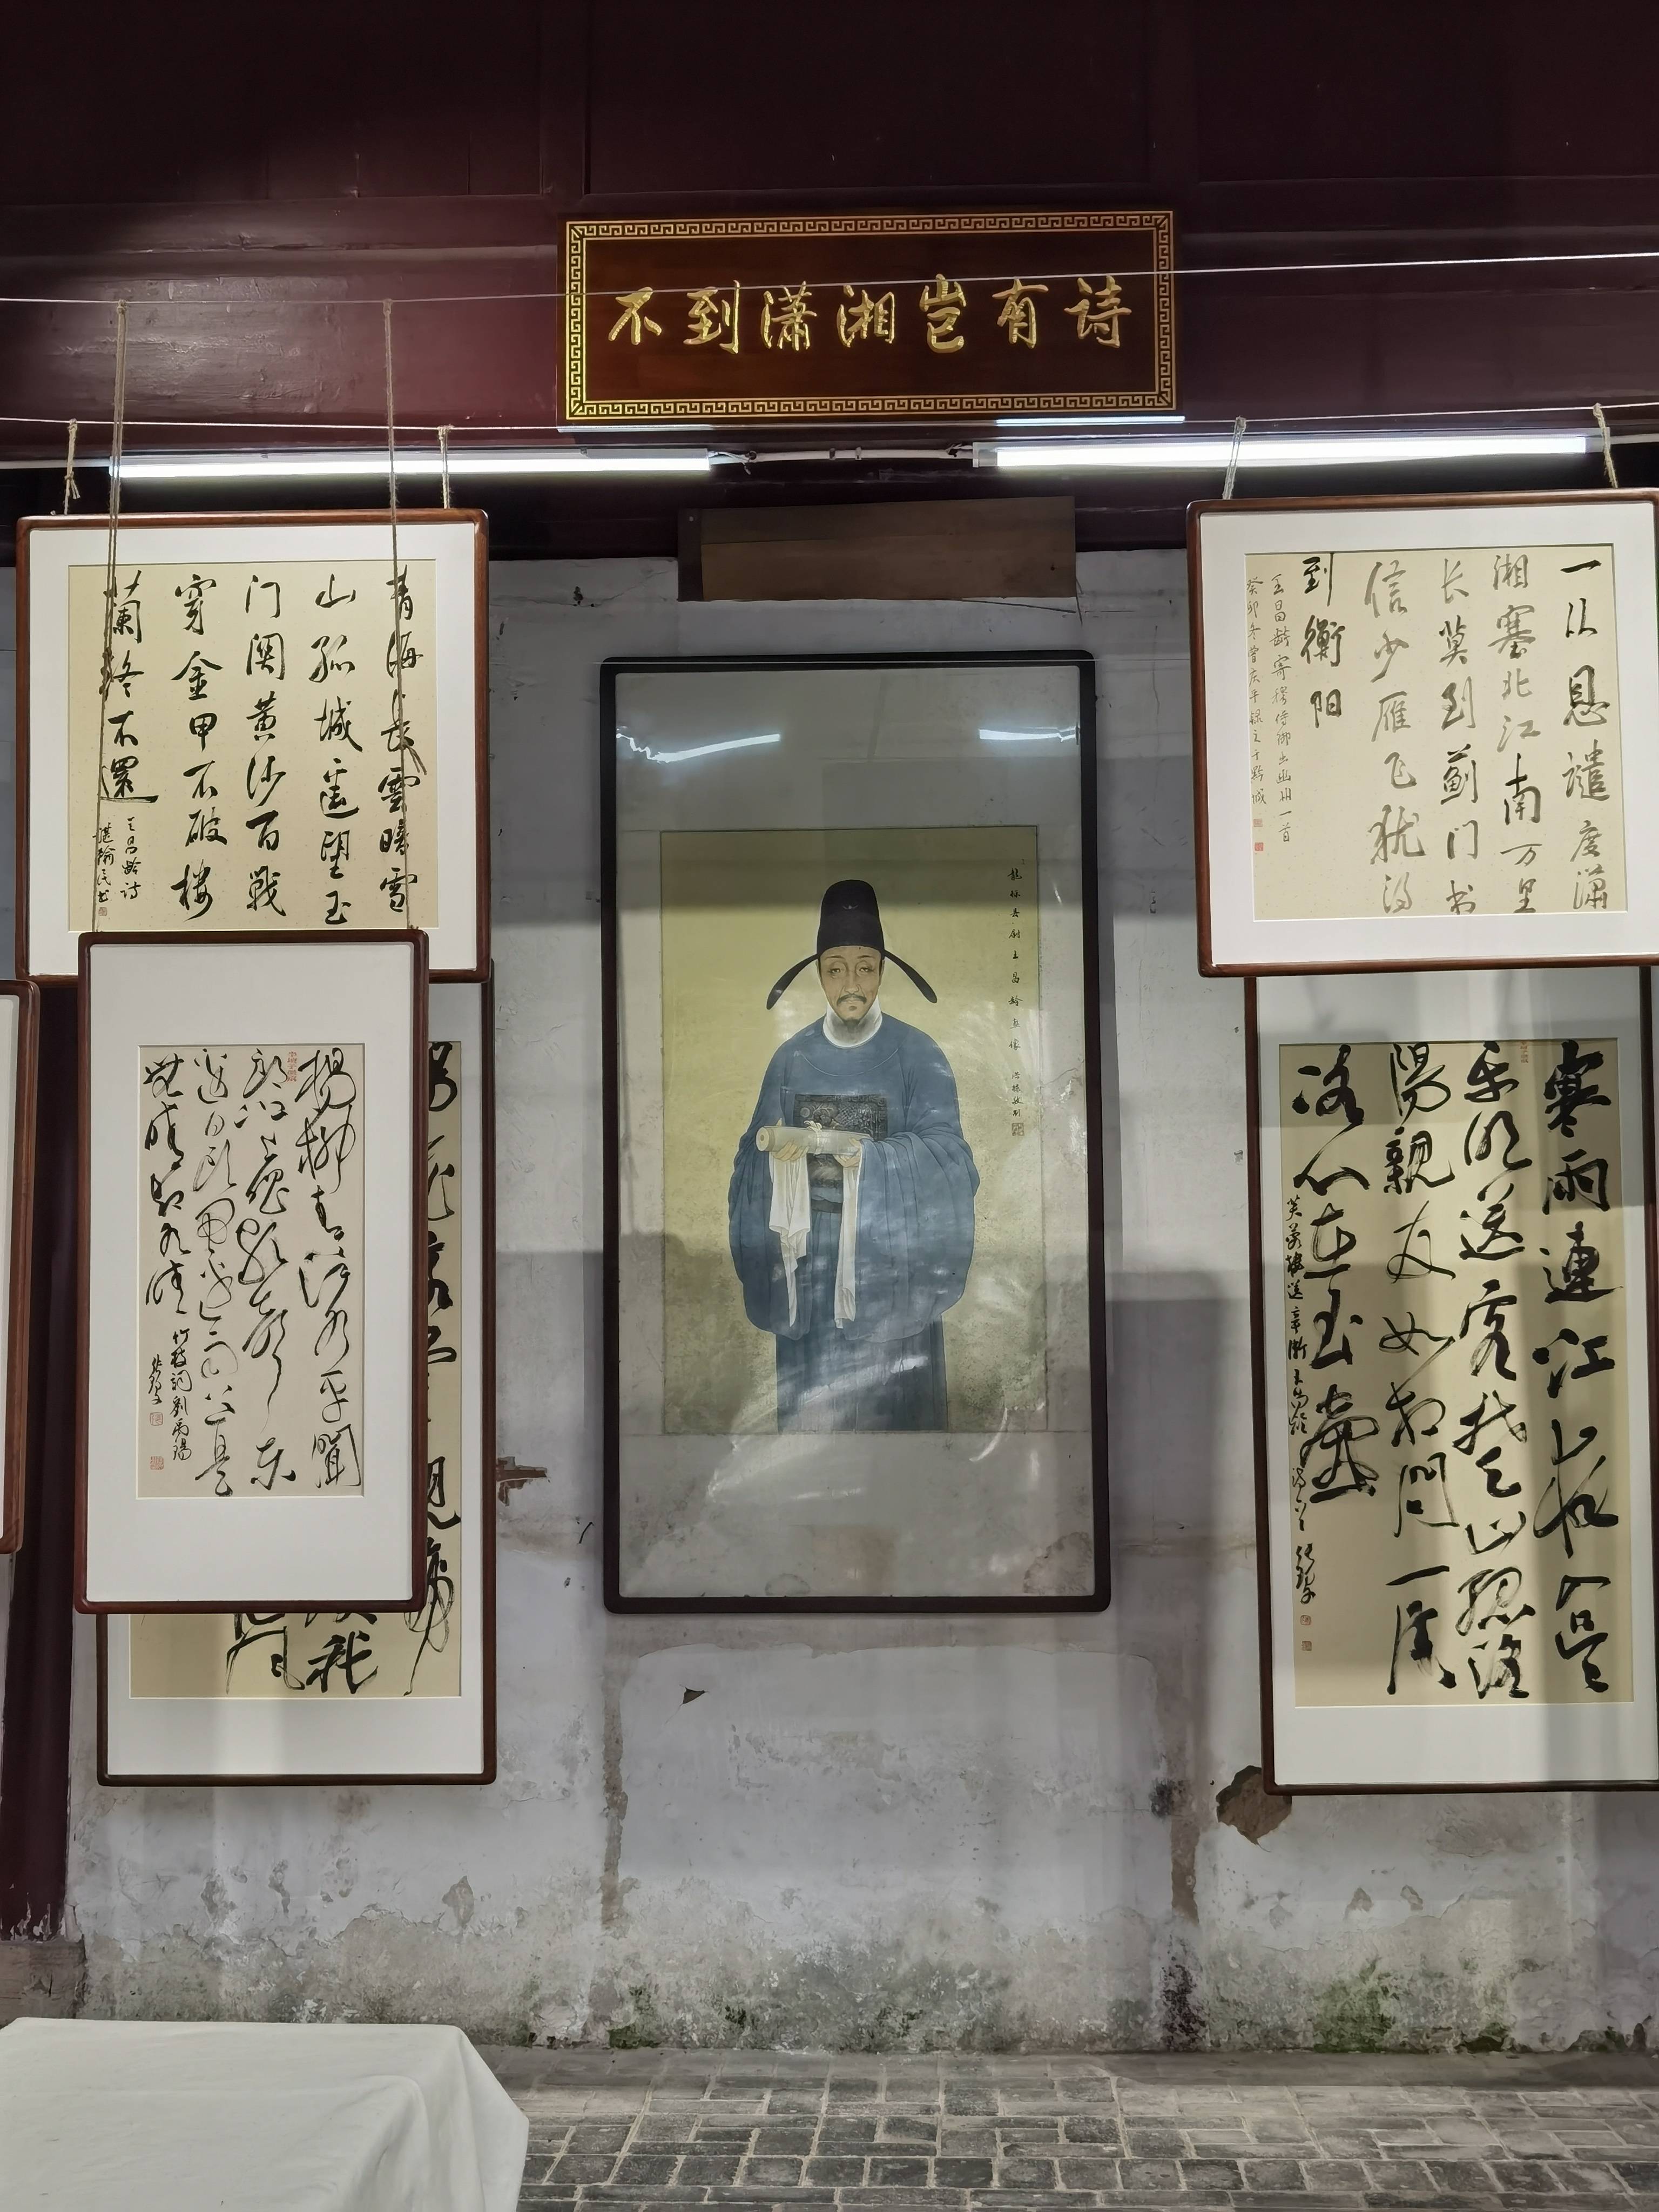 不到潇湘岂有诗
青海长雲暗雪
山孤城遥望玉
门関黄沙百戦
穿金甲不破楼
蘭终不還
王昌龄诗
一从恩谴度潇
湘塞北江南万里
长莫到蓟门书
信少雁飞犹得
到衡阳
王昌龄寄穆侍御出幽州一首
癸卯冬曾庆平録之于黔城
龍标县尉王昌龄画像
楊柳青青江水平聞
郎江上唱歌聲东
邊日出西邊雨道是
無晴却有晴
竹枝词劉禹锡
寒雨連江夜入吴
平明送客楚山孤洛
陽親友如相問一片
冰心在玉壶
芙蓉楼送辛渐王昌龄